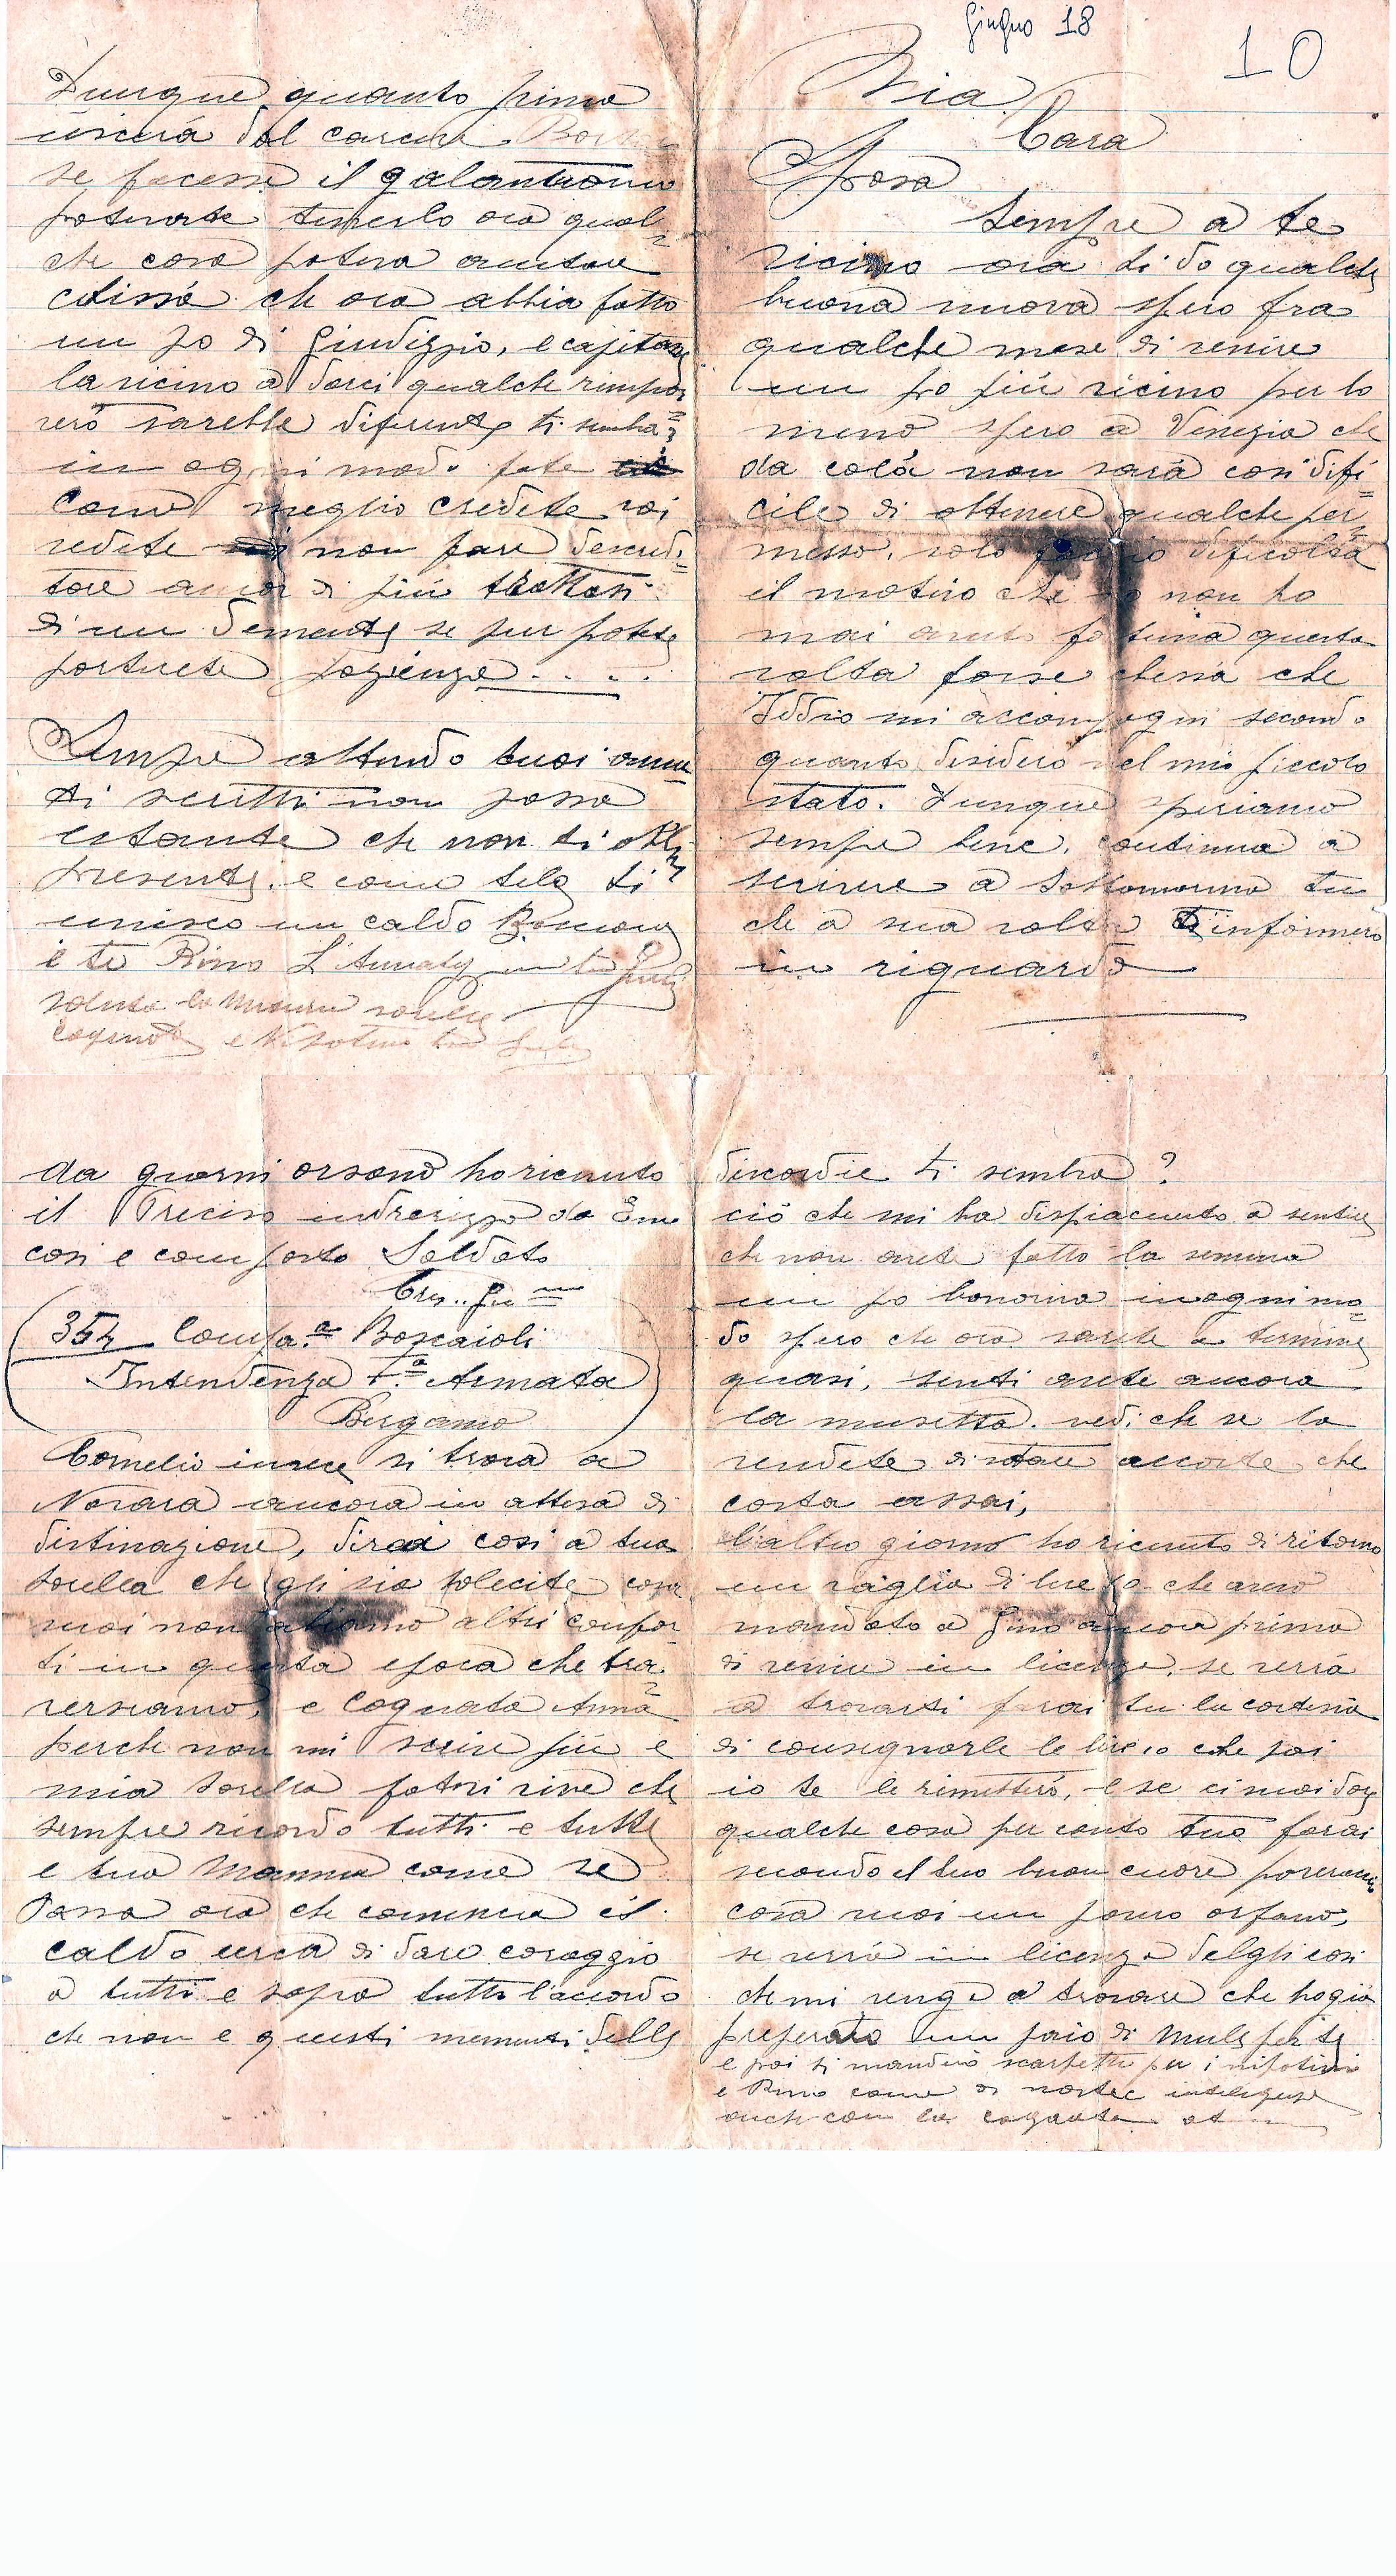 Giugno 18
10
Mia
Cara
Sposa
Sempre a te
vicino ora ti do qualche
buona nuova spero fra
qualche mese di venire
un po più vicino per lo
meno spero a Venezia che
da colà non sarà cosi difi=
cile di ottenere qualche per=
messo, solo dificoltà
il motivo che io non ho
mai avuto fortuna questa
volta forse chessà che
Iddio mi accompagni secondo
quanto desidero nel mio piccolo
stato. Dunque speriamo
sempre bene, continua a
scrivere a Sottomarina tu
che a sua volta ti informerò
in riguardo
da giorni orsono ho ricevuto
il Preciso indrerizzo da
cosi e composto Soldato
354 Compa.a Boscaioli
Intendenza 7.a Armata
Bergamo
Cornelio invece si trova a
Novara ancora in attesa di
distinazione, dirai cosi a tua
sorella che gli sia solecite cosa
vuoi non abiamo altri confor
ti in questa epoca che tra=
versiamo, e Cognata Anna
perche non mi scrive più e
mia sorella
sempre ricordo tutti e tutte
e tua Mamma come se
Passa ora che comincia il
caldo cerca di dare coraggio
a tutti e sopra tutto l'accordo
che non e questi momenti delle
discordie ti sembra?
ciò che mi ha dispiacuto a sentire
che non avete fatto la semina
un po bonorina inogni mo=
do spero che ora sarete a termine
quasi, senti avete ancora
la musetta. vedi che se la
vendete di stare accorte che
costa assai,
L'altro giorno ho ricevuto di ritorno
un vaglia di lire 10 che avevo
mandato a Gino ancora prima
di venire in licenza, se verrà
a trovarti farai tu la cortesia
di consegnarle le lire 10 che poi
io te le rimetterò, e se ci vuoi dare
qualche cosa per conto tuo farai
secondo il tuo buon cuore
cosa vuoi un povero orfano,
se verrà in licenza delgli cosi
che mi venga a trovare che ho già
preparato un paio di mule per te
e poi ti manderò scarpette per i nipotini
e Rino come di nostre intelligenze
anche con la cognata
Dunque quanto prima
uscirà dal carcere
se facesse il galantuomo
potereste tenerlo ora qual=
che cosa poteva aiutare
chissà che ora abbia fatto
un po di Giudizzio, e capitare
la vicino a darci qualche rimpro=
verò sarebbe diferente ti sembra?
in ogni modo fate
come meglio credete voi
vedete non fare
ancor di più trattasi
di un demente se pur potete
portarete pazienza . . . .
Sempre attendo tuoi ama
ti scritti non passa
istante che non ti abbi
presente. e come tale ti
unisco un caldo Bacione
e te Rino
saluta la Mamma sorelle
cognate e Nipotini